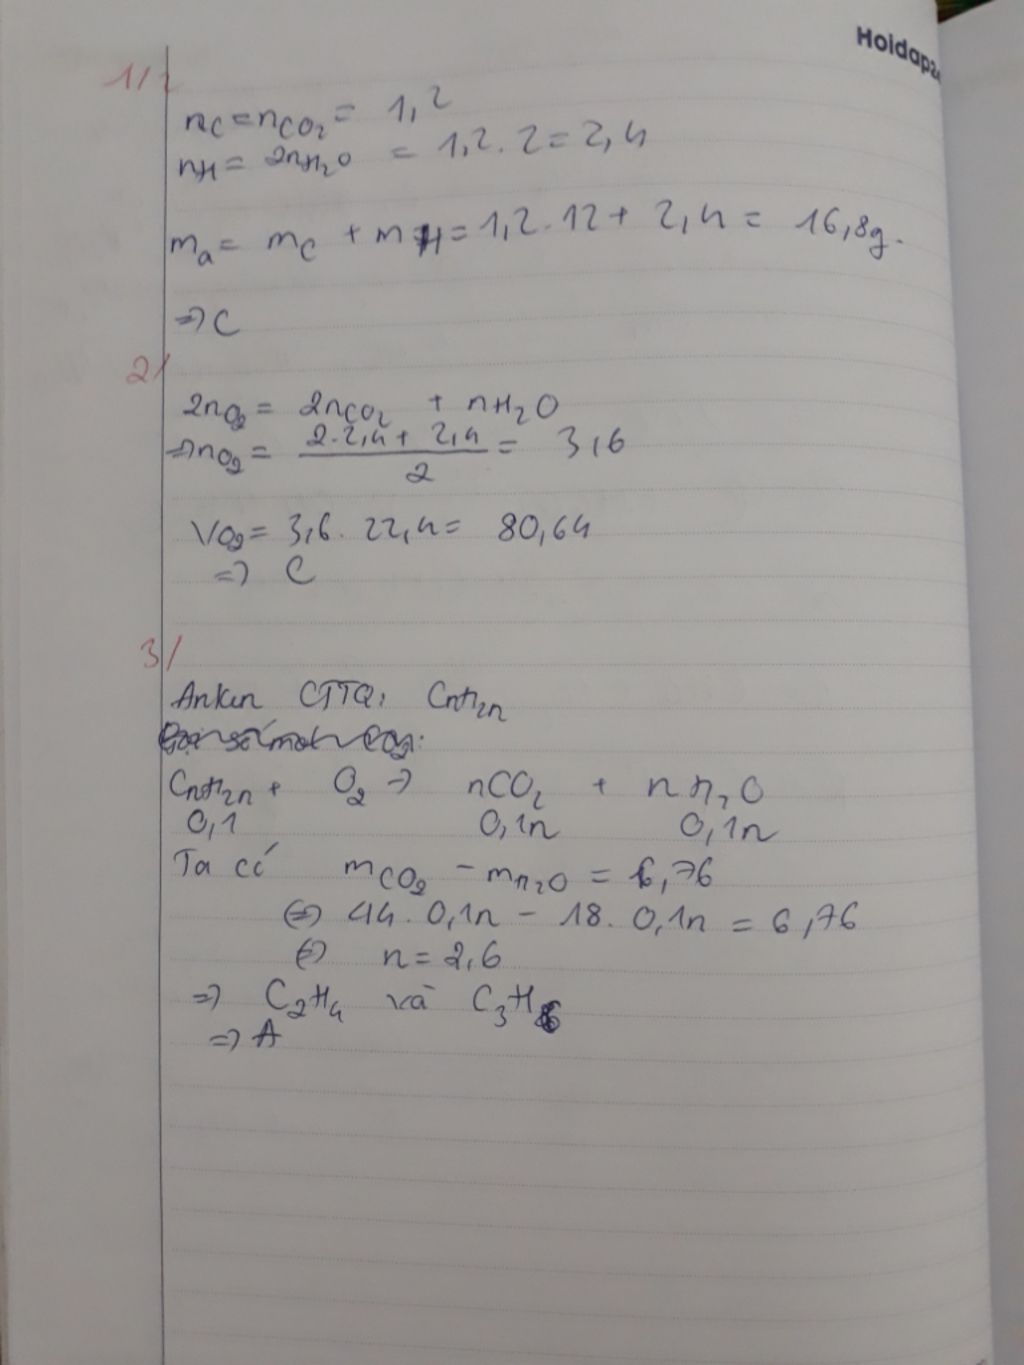 Hoidap2
1/
nC = nCO₂ = 1,2
nH = 2nH₂O = 1,2.2 = 2,4
ma = mC + mH = 1,2.12 + 2,4 = 16,8g.
=> C
2/
2nO₂ = 2nCO₂ + nH₂O
=> nO₂ = (2.2,4 + 2,4)/2 = 3,6
VO₂ = 3,6. 22,4 = 80,64
=> C
3/
Anken CTTQ: CnH2n
CnH2n + O₂ => nCO₂ + nH₂O
0,1 0,1n 0,1n
Ta có mCO₂ - mH₂O = 6,76
<=> 44. 0,1n - 18. 0,1n = 6,76
<=> n = 2,6
=> C₂H₄ và C₃H₆
=> A